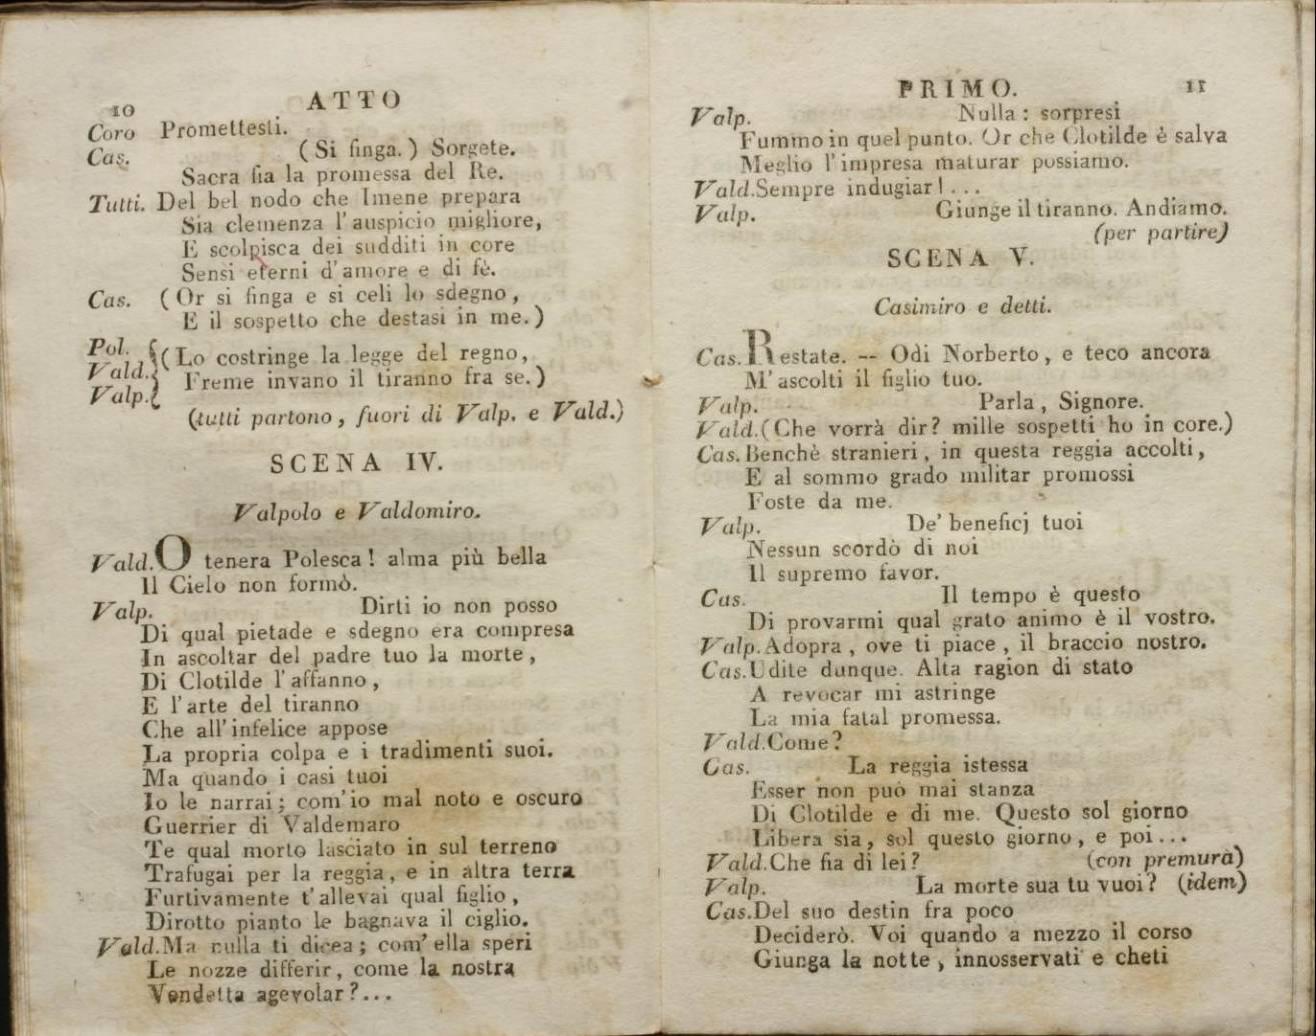 10
ATTO
Coro Promettesti.
Cas. (Si finga.) Sorgete.
Sacra fia la promessa del Re.
Tutti. Del bel nodo che Imene prepara
Sia clemenza l'auspicio migliore,
E scolpisca dei sudditi in core
Sensi eterni d'amore e di fè.
Cas. (Or si finga e si celi lo sdegno,
E il sospetto che destasi in me.)
Pol.
Vald. (Lo costringe la legge del regno,
Valp. Freme invano il tiranno fra se.)
(tutti partono, fuori di Valp. e Vald.)
SCENA IV.
Valpolo e Valdomiro.
Vald. O tenera Polesca! alma più bella
Il Cielo non formò.
Valp. Dirti io non posso
Di qual pietade e sdegno era compresa
In ascoltar del padre tuo la morte,
Di Clotilde l'affanno,
E l'arte del tiranno
Che all'infelice appose
La propria colpa e i tradimenti suoi.
Ma quando i casi tuoi
Io le narrai; com'io mal noto e oscuro
Guerrier di Valdemaro
Te qual morto lasciato in sul terreno
Trafugai per la reggia, e in altra terra
Furtivamente t'allevai qual figlio,
Dirotto pianto le bagnava il ciglio.
Vald. Ma nulla ti dicea; com'ella speri
Le nozze differir, come la nostra
Vendetta agevolar?...
PRIMO.
11
Valp. Nulla: sorpresi
Fummo in quel punto. Or che Clotilde è salva
Meglio l'impresa maturar possiamo.
Vald. Sempre indugiar!...
Valp. Giunge il tiranno. Andiamo.
(per partire)
SCENA V.
Casimiro e detti.
Cas. Restate. -- Odi Norberto, e teco ancora
M'ascolti il figlio tuo.
Valp. Parla, Signore.
Vald. (Che vorrà dir? mille sospetti ho in core.)
Cas. Benchè stranieri, in questa reggia accolti,
E al sommo grado militar promossi
Foste da me.
Valp. De' beneficj tuoi
Nessun scordò di noi
Il supremo favor.
Cas. Il tempo è questo
Di provarmi qual grato animo è il vostro.
Valp. Adopra, ove ti piace, il braccio nostro.
Cas. Udite dunque. Alta ragion di stato
A revocar mi astringe
La mia fatal promessa.
Vald. Come?
Cas. La reggia istessa
Esser non può mai stanza
Di Clotilde e di me. Questo sol giorno
Libera sia, sol questo giorno, e poi...
Vald. Che fia di lei? (con premura)
Valp. La morte sua tu vuoi? (idem)
Cas. Del suo destin fra poco
Deciderò. Voi quando a mezzo il corso
Giunga la notte, innosservati e cheti